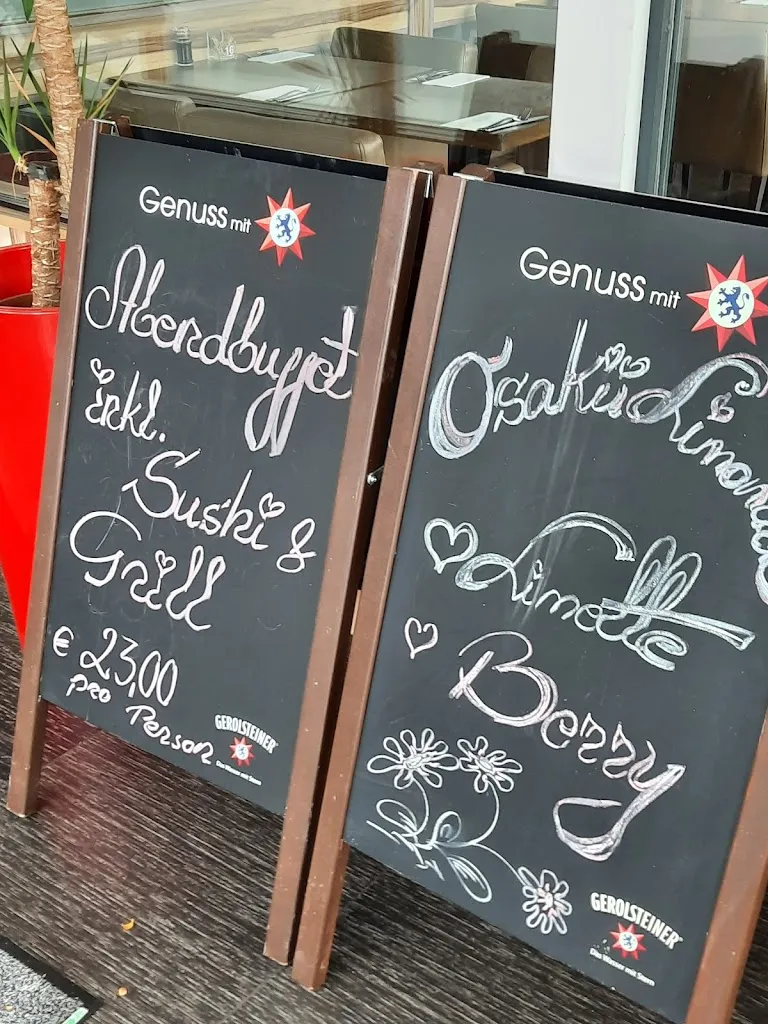 Genuss mit
Abendbuffet
inkl.
Sushi &
Grill
€ 23,00
pro Person
GEROLSTEINER
Das Wasser mit Stern
Genuss mit
Osakii
Limette
Berry
GEROLSTEINER
Das Wasser mit Stern